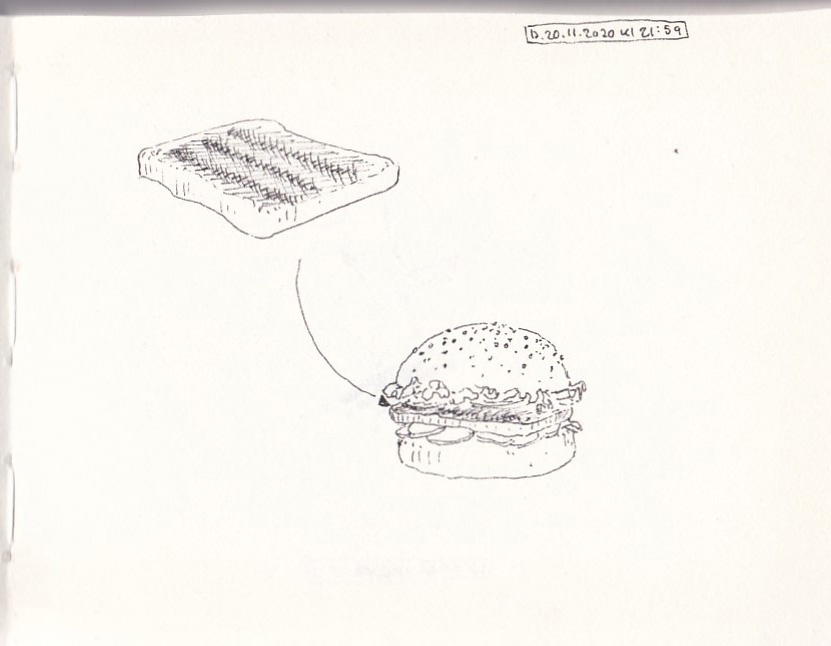 D. 20.11.2020 kl 21:59